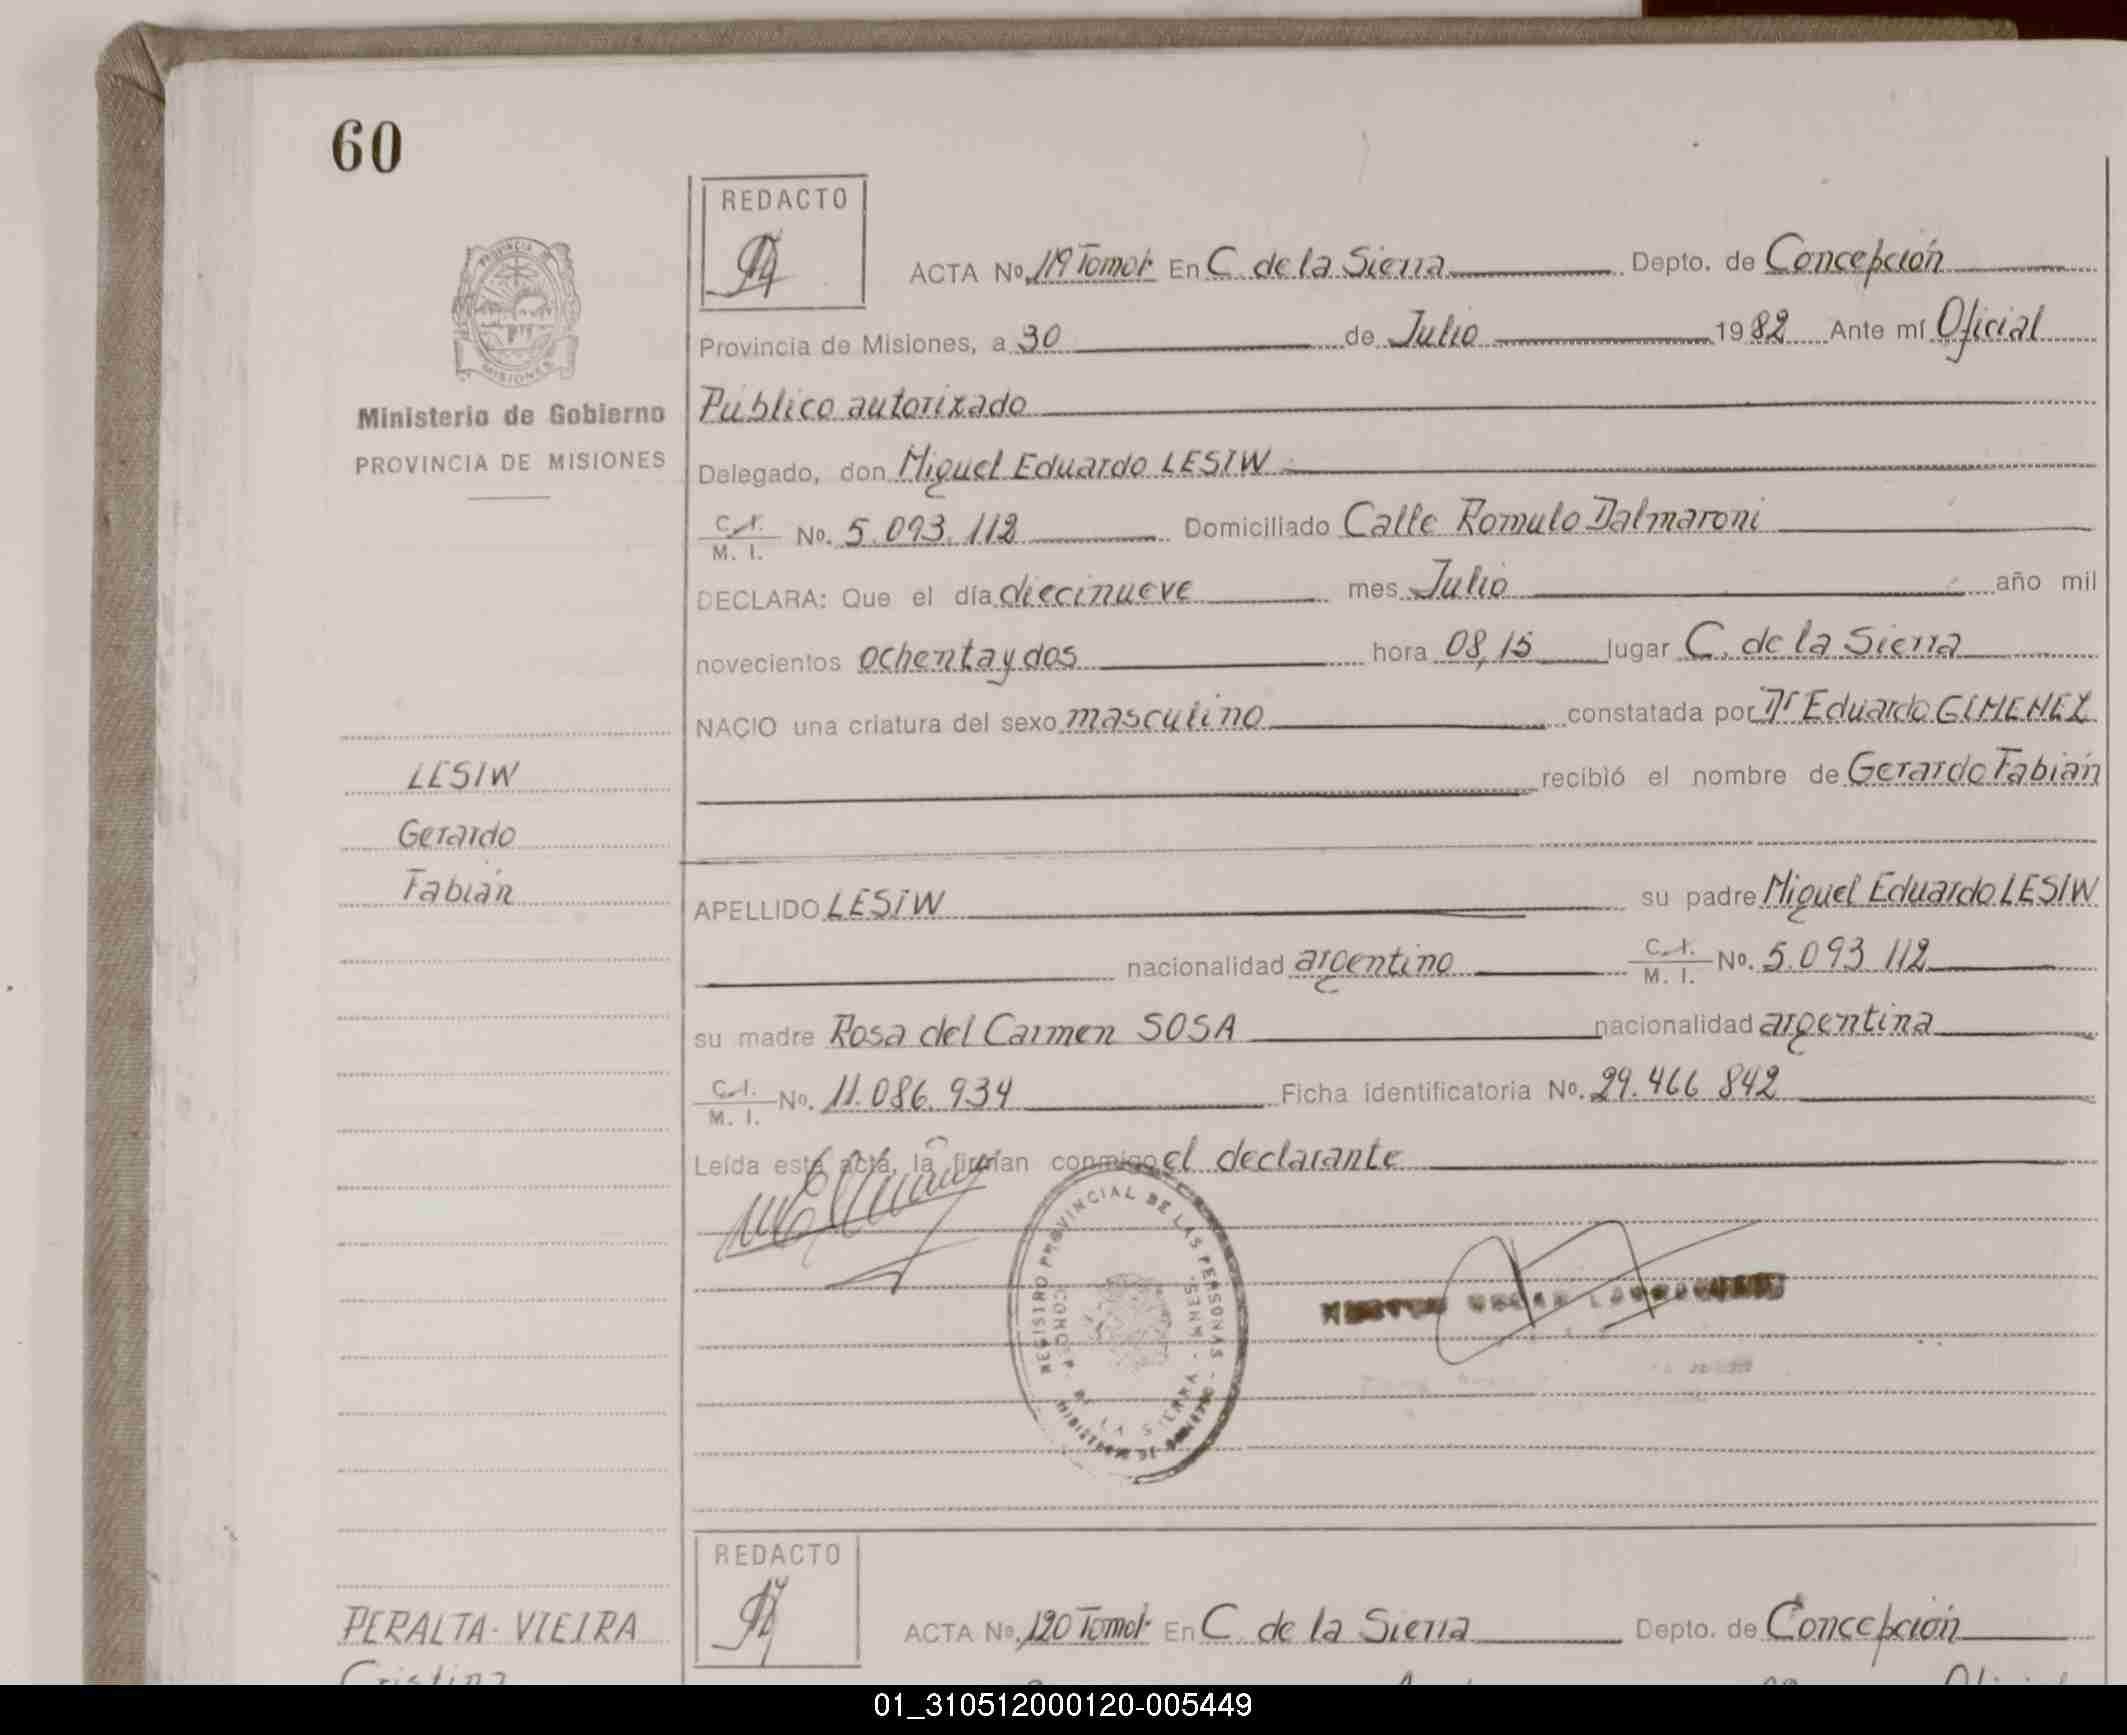 60
REDACTO
ACTA No. 119 Tomo 1º En C. de la Sierra Depto. de Concepción
PROVINCIA
MISIONES
Provincia de Misiones, a 30 de Julio 1982 Ante mí Oficial
Ministerio de Gobierno
Público autorizado
PROVINCIA DE MISIONES
Delegado, don Miguel Eduardo LESIW
C. I.
M. I. No. 5.093.112 Domiciliado Calle Romulo Dalmaroni
DECLARA: Que el día diecinueve mes Julio año mil
novecientos ochenta y dos hora 08,15 lugar C. de la Sierra
NACIO una criatura del sexo masculino constatada por Dr Eduardo GIMENEZ
LESIW
recibió el nombre de Gerardo Fabián
Gerardo
Fabián
APELLIDO LESIW su padre Miguel Eduardo LESIW
nacionalidad argentino C. I. M. I. No. 5.093.112
su madre Rosa del Carmen SOSA nacionalidad argentina
C. I.
M. I. No. 11.086.934 Ficha identificatoria No. 29.466.842
Leída esta acta, la firman conmigo el declarante
REGISTRO PROVINCIAL DE LAS PERSONAS
DE LA SIERRA
REDACTO
PERALTA - VIEIRA
ACTA No. 120 Tomo 1º En C. de la Sierra Depto. de Concepción
Cristina
01_310512000120-005449